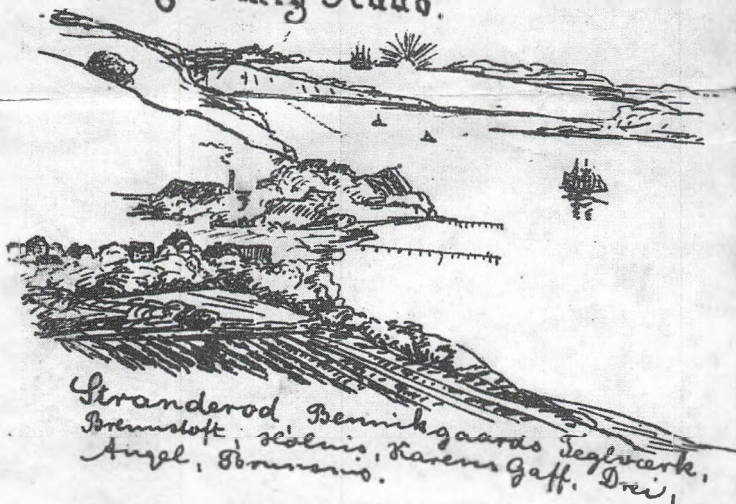 Stranderød, Bennikgaards Teglværk,
Brennstoft, Holnis, Karens Gaff, Drei,
Angel, Brunsnis.